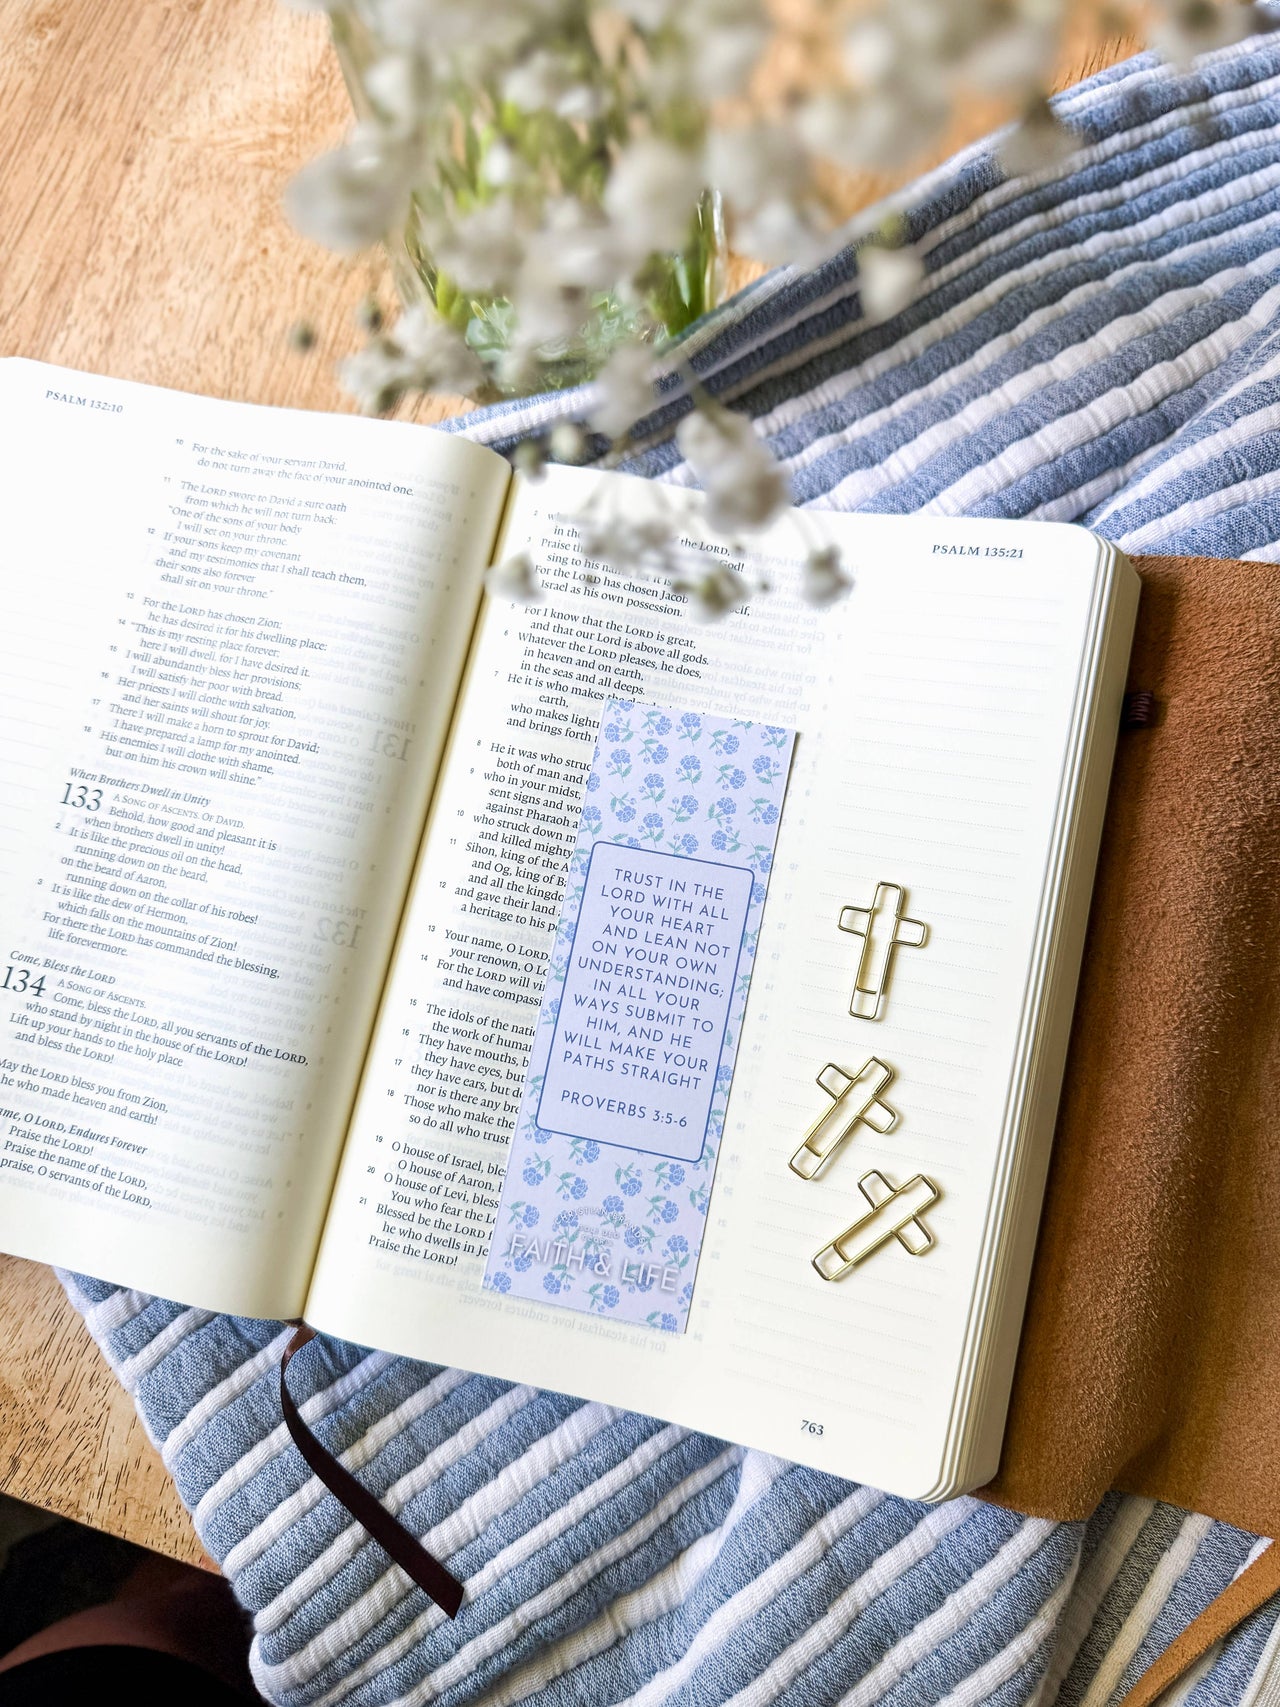 PSALM 132:10
10 For the sake of your servant David,
do not turn away the face of your anointed one.
11 The LORD swore to David a sure oath
from which he will not turn back:
"One of the sons of your body
I will set on your throne.
12 If your sons keep my covenant
and my testimonies that I shall teach them,
their sons also forever
shall sit on your throne."
13 For the LORD has chosen Zion;
he has desired it for his dwelling place:
14 "This is my resting place forever;
here I will dwell, for I have desired it.
15 I will abundantly bless her provisions;
I will satisfy her poor with bread.
16 Her priests I will clothe with salvation,
and her saints will shout for joy.
17 There I will make a horn to sprout for David;
I have prepared a lamp for my anointed.
18 His enemies I will clothe with shame,
but on him his crown will shine."
When Brothers Dwell in Unity
133 A SONG OF ASCENTS. OF DAVID.
Behold, how good and pleasant it is
when brothers dwell in unity!
2 It is like the precious oil on the head,
running down on the beard,
on the beard of Aaron,
running down on the collar of his robes!
3 It is like the dew of Hermon,
which falls on the mountains of Zion!
For there the LORD has commanded the blessing,
life forevermore.
Come, Bless the LORD
134 A SONG OF ASCENTS.
Come, bless the LORD, all you servants of the LORD,
who stand by night in the house of the LORD!
Lift up your hands to the holy place
and bless the LORD!
May the LORD bless you from Zion,
he who made heaven and earth!
O Lord, Endures Forever
Praise the LORD!
Praise the name of the LORD,
praise, O servants of the LORD,
PSALM 135:21
2
in the the LORD,
3 Praise God!
sing to his
For the LORD has chosen Jacob
Israel as his own possession.
5 For I know that the LORD is great,
and that our Lord is above all gods.
6 Whatever the LORD pleases, he does,
in heaven and on earth,
in the seas and all deeps.
7 He it is who makes the
earth,
who makes
and brings forth
8 He it was who
both of man and
9 who in your midst,
sent signs and
against Pharaoh
10 who struck down
and killed mighty
11 Sihon, king of the
and Og, king of
and all the
12 and gave their land
a heritage to his
13 Your name, O LORD,
your renown, O
14 For the LORD will
and have
15 The idols of the
the work of
16 They have mouths,
they have eyes, but
17 they have ears, but
nor is there any
18 Those who make
so do all who trust
19 O house of Israel,
O house of Aaron,
20 O house of Levi,
You who fear the
21 Blessed be the LORD
he who dwells in
Praise the LORD!
TRUST IN THE
LORD WITH ALL
YOUR HEART
AND LEAN NOT
ON YOUR OWN
UNDERSTANDING;
IN ALL YOUR
WAYS SUBMIT TO
HIM, AND HE
WILL MAKE YOUR
PATHS STRAIGHT
PROVERBS 3:5-6
FAITH & LIFE
763